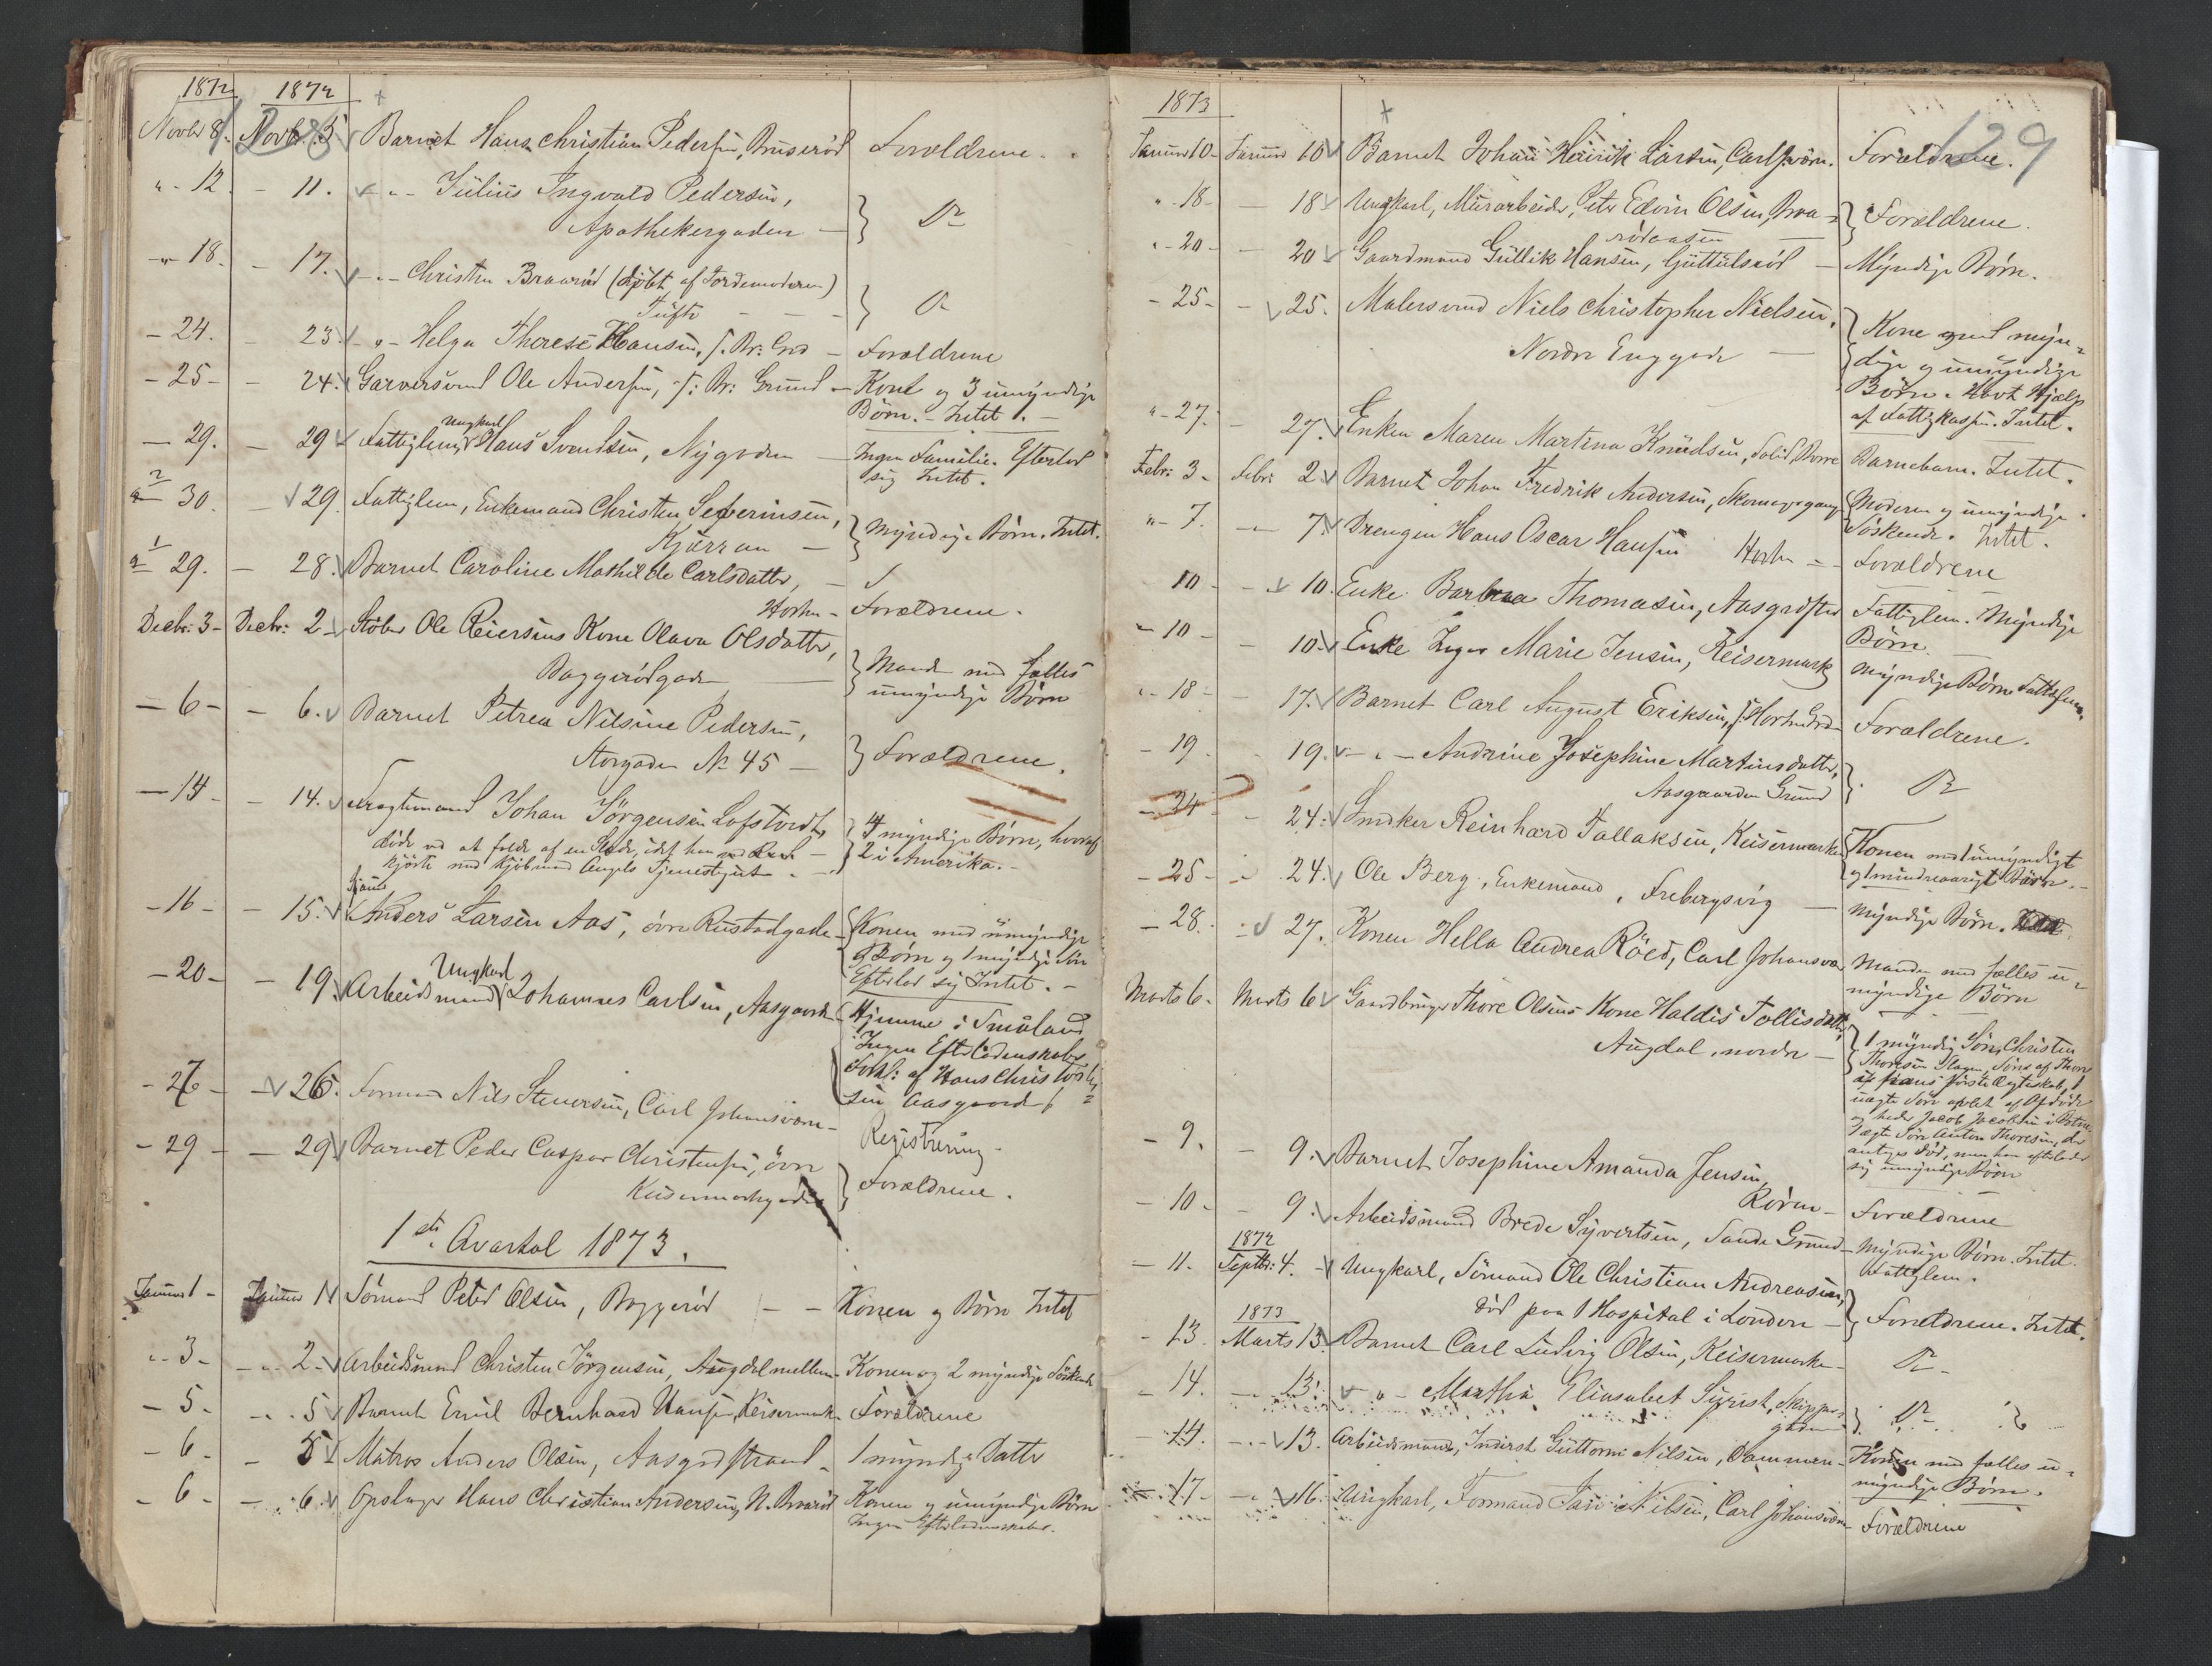 1872 1872
Novbr 8. Novbr. 5 Barnet Hans Christian Pedersen, Bruserød Forældrene.
128
" - 12. - 11. - " - Julius Ingvald Pedersen,
Apothekergaden - } Do
- " 18. - 17. - " - Christen Braarød (døbt af Jordemoderen)
Tufte - - - } Do
- 24. - 23. - " - Helga Therese Hansen, f. Br: Grd - Forældrene
- 25 - - 24. Garversvend Ole Andersen, f: Br: Grund - Kone og 3 umyndige
Børn. - Intet. -
Ungkarl
- 29. - 29 Fattiglem, Hans Svendsen, Nygaden - Ingen Familie. Efterlod
sig Intet.
2
" 30. - 29. Fattiglem, Enkemand Christen Severinsen,
Kjærran - } Myndige Børn. Intet.
1
" 29. - 28. Barnet Caroline Mathilde Carlsdatter, -
Horten - Forældrene.
Decbr. 3 - Decbr: 2 - Støber Ole Reiersens Kone Olava Olsdatter,
Baggerødgaden - } Manden med fælles
umyndige Børn
- 6 - - 6. Barnet Petrea Nilsine Pedersen,
Storgaden No 45 - } Forældrene.
- 14 - - 14. Fragtemand Johan Jørgensen Lofstvedt,
døde ved at falde af en Slæde, idet han
kjørte med Kjøbmand Angels Tjenestegut. - } 4 myndige Børn, hvoraf
2 i Amerika. -
- 16 - - 15. Anders Larsen Aas, øvre Rustadgade - Konen med umyndige
Børn og 1 myndig Søn
Efterlod sig Intet. -
Ungkarl
- 20 - - 19. Arbeidsmand Johannes Carlsen, Aasgaarden - Hjemme i Småland
Ingen Efterladenskaber
Forkl: af Hans Christoffer-
sen Aasgaarden
- 27 - - 26. Formand Nils Stenersen, Carl Johansværn -
Registrering.
- 29 - - 29 Barnet Peder Casper Christensen, øvre
Keisermarkgaden } Forældrene.
1ste Qvartal 1873.
Januar 1 - Januar 1 Sømand Peter Olsen, Baggerød - - Konen og Børn Intet
" - 3 - - " - 2. Arbeidsmand Christen Jørgensen, Augdal mellem - Konen og 2 myndige Søskende
- 5 - - " . 5 Barnet Emil Bernhard Hansen, Keisermark - Forældrene
- 6 - - 5 Matros Anders Olsen, Aasgrdstrand - 1 myndig Datter
- 6 - - . 6. Opslager Hans Christian Andersen, N. Braarød Konen og umyndige Børn
Ingen Efterladenskaber.
1873
129
Januar 10 - Januar 10 Barnet Johan Henrik Larsen, Carljsværn. Forældrene.
" - 18 - - 18 Ungkarl, Murarbeider, Peter Edvin Olsen, Braa-
rødaasen } Forældrene.
" - 20 - - 20 Gaardmand Gullik Hansen, Guttulsrød - Myndige Børn.
- 25 - - 25. Malersvend Niels Christopher Nielsen,
Nordre Enggade - } Kone med myn-
dige og umyndige
Børn. Havt Hjælp
af Fattigkassen. Intet.
" - 27. - 27. Enken Maren Martina Knudsen, Borre Barnebarn. Intet.
Febr: 3 - Febr: 2 Barnet Johan Fredrik Andersen, Skomagergang - Moderen og umyndige
Søskende. Intet.
" - 7. - " - 7. Drengen Hans Oscar Hansen Horten - - Forældrene
10 - - 10. Enke Barbra Thomasen, Aasgrdstrd Fattiglem. Myndige
Børn.
- 10 - - 10. Enke Inger Marie Jensen, Keisermark Myndige Børn Fattiglem.
" - 18 - - 17. Barnet Carl August Eriksen, f: Horten Grd - Forældrene.
- 19 - - 19. - " - Andrine Josephine Martinsdatter,
Aasgaarden Grund } Do
- 24 - - 24. Snedker Reinhard Tallaksen, Keisermarken Konen med 1 umyndigt
og 1 mindreaarigt Barn. -
- 25 - - . 24. Ole Berg, Enkemand, Frebergsvig - Myndige Børn.
- 28. - 27. Konen Hella Andrea Röed, Carl Johansvær Manden med fælles u-
myndige Børn
Marts 6. Marts 6 Gaardbruger Thore Olsens Kone Haldis Tollisdatter,
Augdal, nordre - } 1 myndig Søn, Christen
Thoresen Slagen, Søns af Thore
af hans første Ægteskab, 1
uægte Søn avlet af Afdøde
og heder Jacob Jacobsen i Botne,
1 ægte Søn Anton Thoresen, der
antages død, men han efterlader
sig umyndige Børn
- 9. - 9. Barnet Josephine Amanda Jensen,
Røren - Forældrene
- 10 - - 9. Arbeidsmand Brede Syvertsen, Sande Grund - Myndige Børn. Intet.
Fattiglem.
1872
- 11. Septbr: 4. - Ungkarl, Sømand Ole Christian Andreasen,
død paa 1 Hospital i London - } Forældrene. Intet.
1873
- 13. Marts 13. Barnet Carl Ludvig Olsen, Keisermarken - Do -
- 14. - 13. - " - Martha Elisabet Sigrist, Skipper-
gaden } Do -
- 14. - " - 13. Arbeidsmand, Inderst Guttorm Nilsen, Dammen - Konen med fælles u-
myndige Børn.
- 17 - - " - 16. Ungkarl, Formand Nilsen, Carl Johansværn - Forældrene